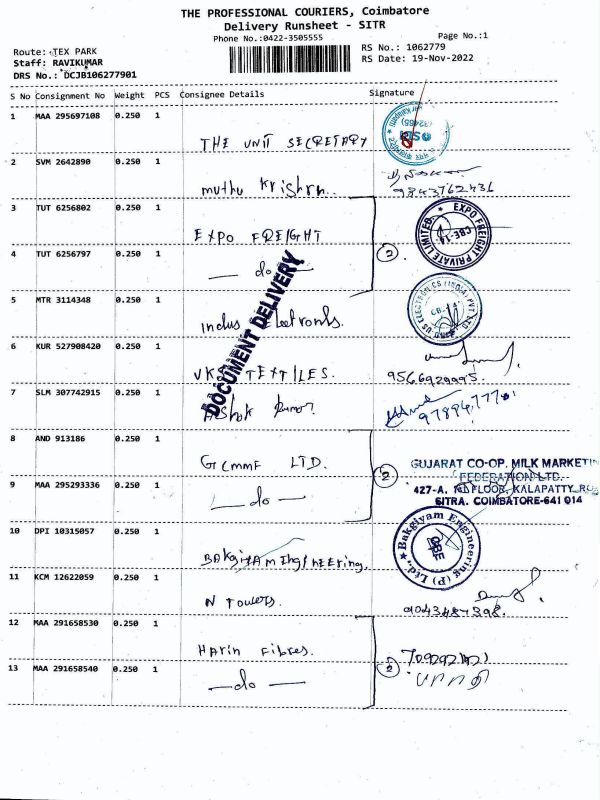 THE PROFESSIONAL COURIERS, Coimbatore
Delivery Runsheet - SITR
Phone No.:0422-3505555
Page No.:1
Route: TEX PARK
RS No.: 1062779
Staff: RAVIKUMAR
RS Date: 19-Nov-2022
DRS No.: DCJB106277901
S No Consignment No Weight PCS Consignee Details Signature
1 MAA 295697108 0.250 1
THE UNIT SECRETARY
2 SVM 2642890 0.250 1
muthu Krishn..
9843762436
3 TUT 6256802 0.250 1
EXPO FREIGHT
EXPO FREIGHT PRIVATE LIMITED
CBE-14
2
4 TUT 6256797 0.250 1
— do —
DOCUMENT DELIVERY
5 MTR 3114348 0.250 1
Indus Electronks.
6 KUR 527908420 0.250 1
VKS TEXTILES.
9566929995.
7 SLM 307742915 0.250 1
AShok kumar.
8 AND 913186 0.250 1
GCMMF LTD.
2
GUJARAT CO-OP. MILK MARKETIN
FEDERATION LTD.
9 MAA 295293336 0.250 1
427-A, FLOOR, KALAPATTY
SITRA. COIMBATORE-641 014
— do —
10 DPI 10315057 0.250 1
BAkgiyam Engineering.
Bakgiyam Engineering (P) Ltd.,
CBE
11 KCM 12622059 0.250 1
N Towers.
12 MAA 291658530 0.250 1
Harin Fibres.
2
13 MAA 291658540 0.250 1
— do —